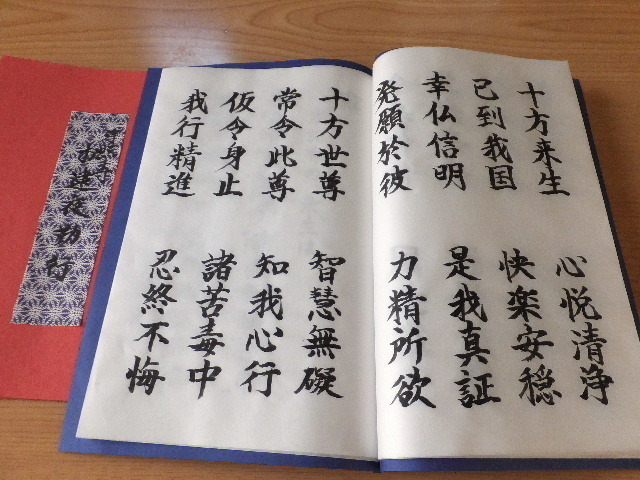 十方来生　心悦清浄
已到我国　快楽安穏
幸仏信明　是我真証
発願於彼　力精所欲
十方世尊　智慧無礙
常令此尊　知我心行
仮令身止　諸苦毒中
我行精進　忍終不悔
逮夜勤行